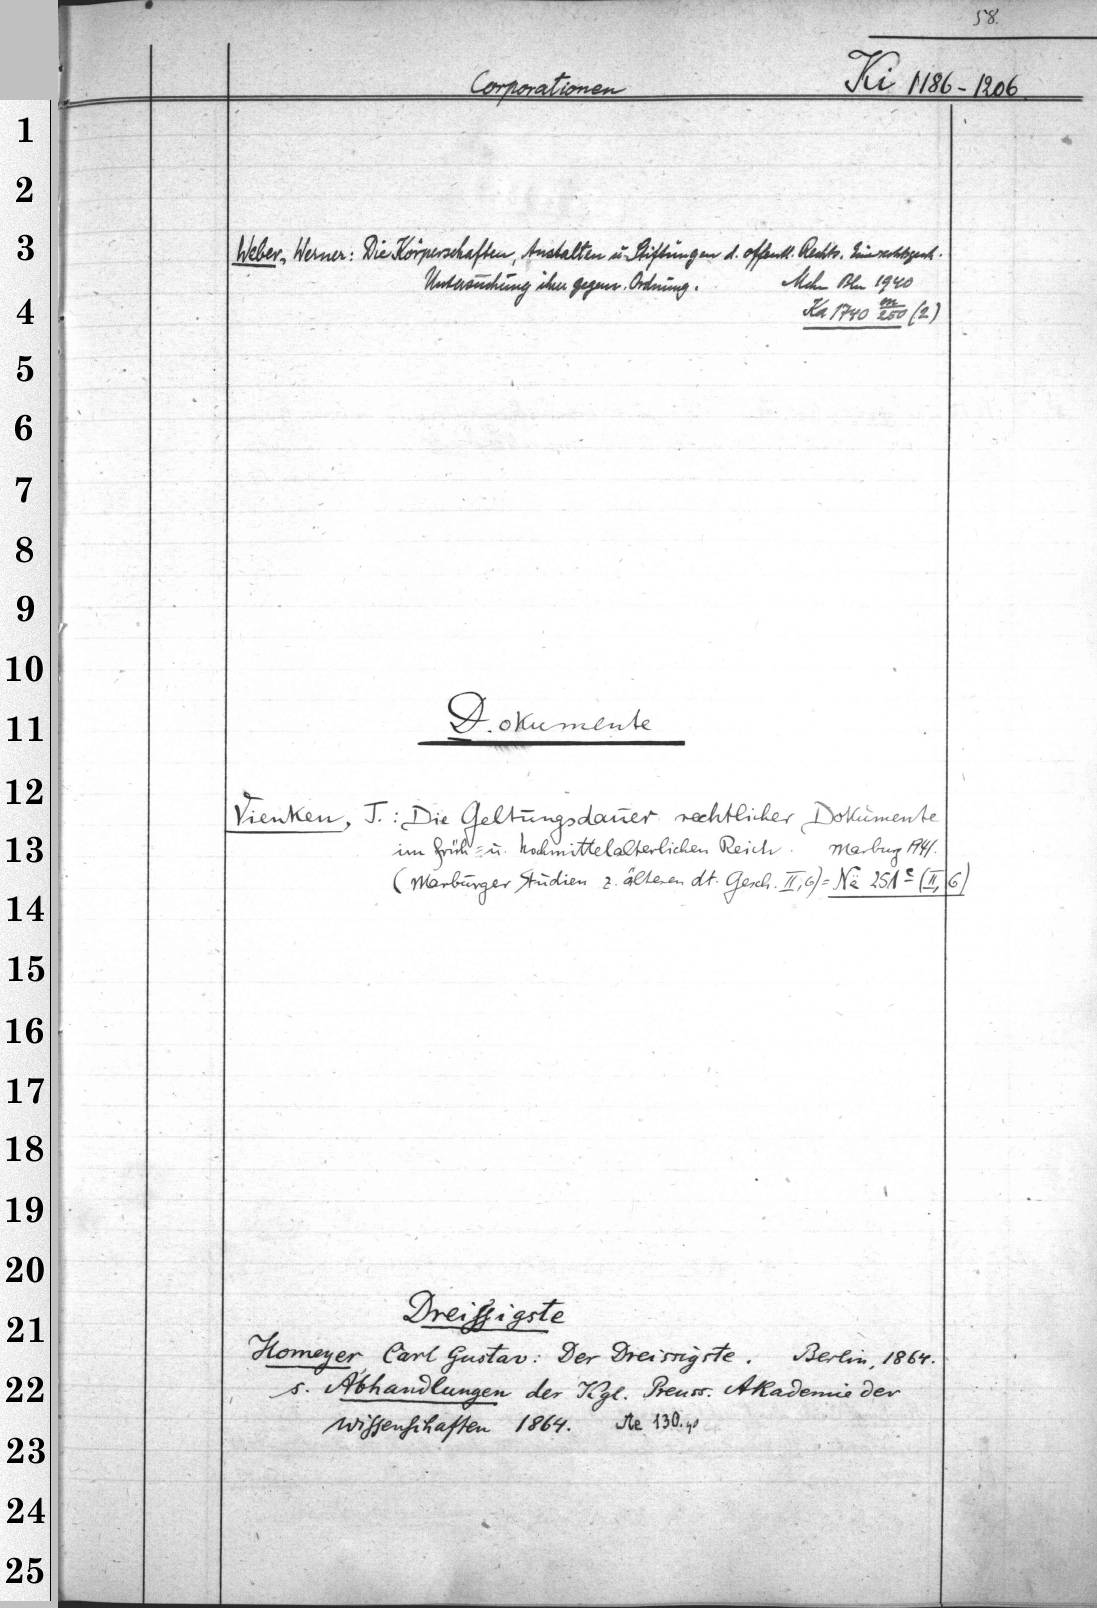 58.
Corporationen Ki 1186-1206
Weber, Werner: Die Körperschaften, Anstalten u. Stiftungen d. öffentl. Rechts. Eine rechtsgesch.
Untersuchung ihrer gegenw. Ordnung. Mchn Bln 1940
Ka 1740 m/250 (2)
Dokumente
Vienken, T.: Die Geltungsdauer rechtlicher Dokumente
im früh= u. hochmittelalterlichen Reich. Marburg 1941.
(Marburger Studien z. älteren dt. Gesch. II, 6) = Ne 251 e (II, 6)
Dreissigste
Homeyer, Carl Gustav: Der Dreissigste. Berlin, 1864.
s. Abhandlungen der Kgl. Preuss. Akademie der
Wissenschaften 1864. Ae 130.40
1
2
3
4
5
6
7
8
9
10
11
12
13
14
15
16
17
18
19
20
21
22
23
24
25